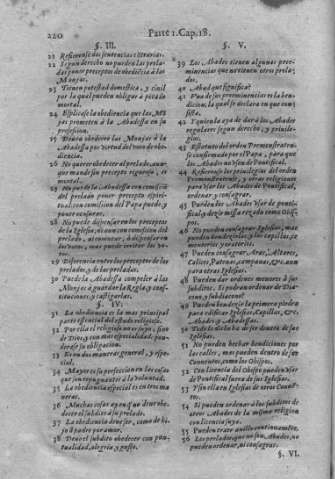 220 Parte 1. Cap. 18.
§. III.
21 Refierense dos sentencias contrarias.
22 Segun derecho no pueden los prela-
dos poner preceptos de obediēcia à las
Monjas.
23 Tienen potestad domestica, y ciuil
por la qual pueden obligar a pecado
mortal.
24 Explicase la obediencia que las Mō-
jas prometen à la Abadessa en su
profession.
25 Deuen obedecer las Monjas à la
Abadessa por virtud del voto de obe-
diencia.
26 No querer obedecer al prelado, aun-
que mande sin precepto riguroso, es
mortal.
27 No puede la Abadessa con comissiō
del prelado poner precepto espiri-
tual, con comission del Papa puede, y
puede
28 No puede dispensar en los preceptos
de la Iglesia, ni aun con comission del
prelado,
29 Diferencia entre los preceptos de los
prelados, y de las preladas.
30 Puede la Abadessa compeler à las
Monjas a guardar la Regla, y cons-
tituciones, y castigarlas.
§. IV.
31 La obediencia es la mas principal
parte essencial del estado religioso.
32 Por ella el religioso no es suyo, sino
de Dios, y con mas especialidad
33 Es en dos maneras general, y espe-
cial.
34 Mayor es la perfeccion en las cosas
que son repugnantes à la voluntad.
35 La obediencia especial es en tres ma-
neras.
36 Muchas cosas ay en que no deue obe-
decer el subdito à su prelado.
37 La obediencia deue ser, como de hi-
jo à padre por amor.
38 Deue el subdito obedecer con pun-
tualidad, alegria, y gusto.
§. V.
39 Los Abades tienen algunas pree-
minencias que no tienen otros prela-
dos.
40 Abad que significa?
41 Vna de sus preeminencias es la ben-
dicion, la qual se declara en que con-
siste.
42 Aquien la aya de dar à los Abades
regulares segun derecho, y priuile-
gios.
43 confirmado por el Papa, para que
los Abades vsen de Pontifical.
44 Refierense los priuilegios del orden
Premonstratense, y otras religiones
para vsar los Abades de Pontifical,
ordenar, y consagrar.
45 Pueden los Abades vsar de pontifi-
cal, y dezir missa rezada como Obis-
pos.
46 No pueden consagrar Iglesias, mas
pueden bendezirlas, y las capillas, ce-
menterios y oratorios.
47 Pueden consagrar Aras, Altares,
Calices, Patenas, campanas, &c. aun
para otras Iglesias.
48 Pueden dar ordenes menores à sus
subditos. Si podran ordenar de Dia-
cono, y subdiacono?
49 Pueden bendezir la primera piedra
para edificar Iglesias, Capillas, &c.
Abades, y Abadessas.
50 Todo lo dicho ha de ser dentro de sus
Iglesias.
51 No pueden hechar bendiciones por
las calles, mas pueden dentro de sus
Conuentos, como los Obispos.
52 Con licencia del Obispo pueden vsar
de Pontifical fuera de sus Iglesias.
53 Y si en Iglesias de otros Conuen-
tos.
54 Si pueden ordenar à los subditos de
otros Abades de la misma religion
con licencia suya.
55 Pueden traer anillo continuamente.
56 Los prelados que no son Abades, no
pueden ordenar, ni consagrar.
§. VI.